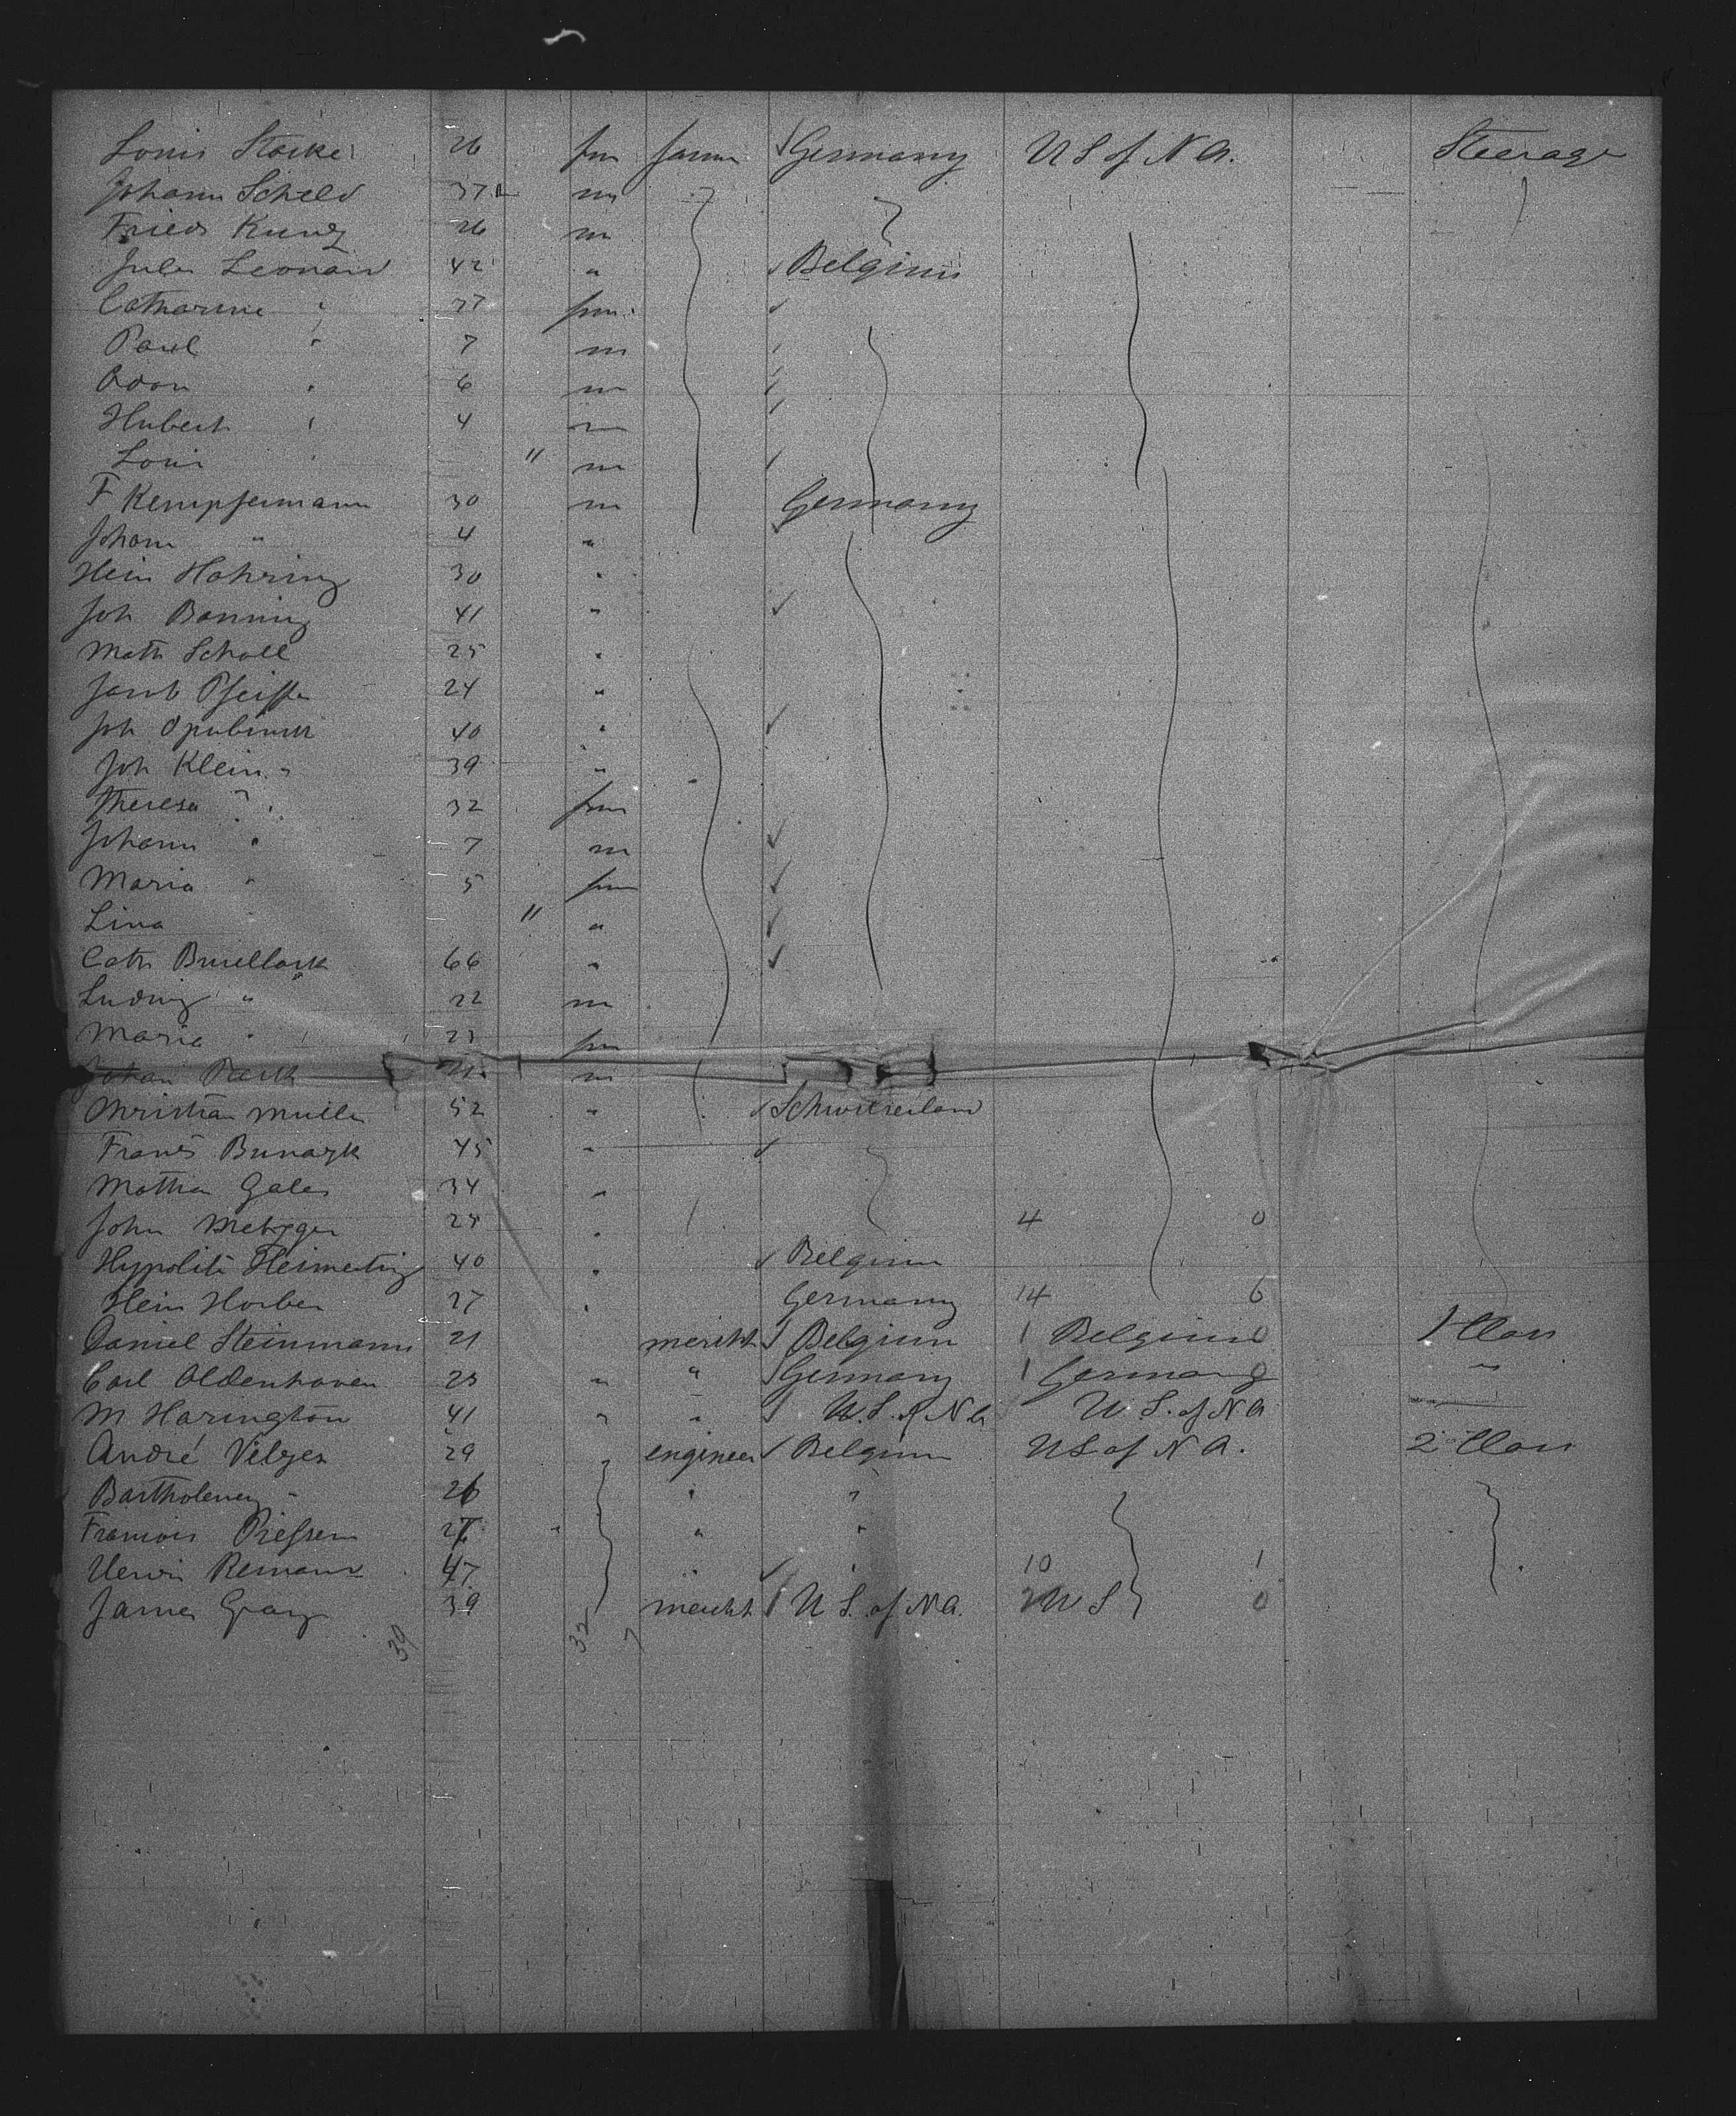 Louis Starke 26 fm farmer Germany U S of N A. Steerage
Johann Scheld 37 m
Fried Kunz 26 m
Jules Leonard 42 " Belgium
Catharine " 37 fm
Paul " 7 m
Odon " 6 m
Hubert " 4 m
Louis " " m
F Kempfermann 30 m Germany
Johann " 4 "
Hein Hohring 30 "
Joh Banning 41 "
Math Scholl 25 "
Jacob Pfeiffer 24 "
Joh 40 "
Joh Klein 39 "
Theresa " 32 fm
Johann " 7 m
Maria " 5 fm
Lina " " "
Cath 66 "
Ludwig " 22 m
Maria " 23 fm
Johan m
Christian Muller 52 "
Franz 45 "
Mathia Gales 34 "
John Metzger 24 " 4 0
Hypolite 40 " Belgium
Hein Horber 27 " Germany 14 6
Daniel Steinmann 21 mercht Belgium 1 Belgium 0 1 Class
Carl Oldenhoven 23 " " Germany 1 Germany 0 "
M Harington 41 " " U. S. of N A U. S. of N A
André 29 " engineer Belgium U S of N A. 2 Class
Bartholemey " 26 " "
Francois 27 " "
Remand 47 " " 10 1
James Gray 39 mercht U S. of N A. 2 U S 0
39 32 7